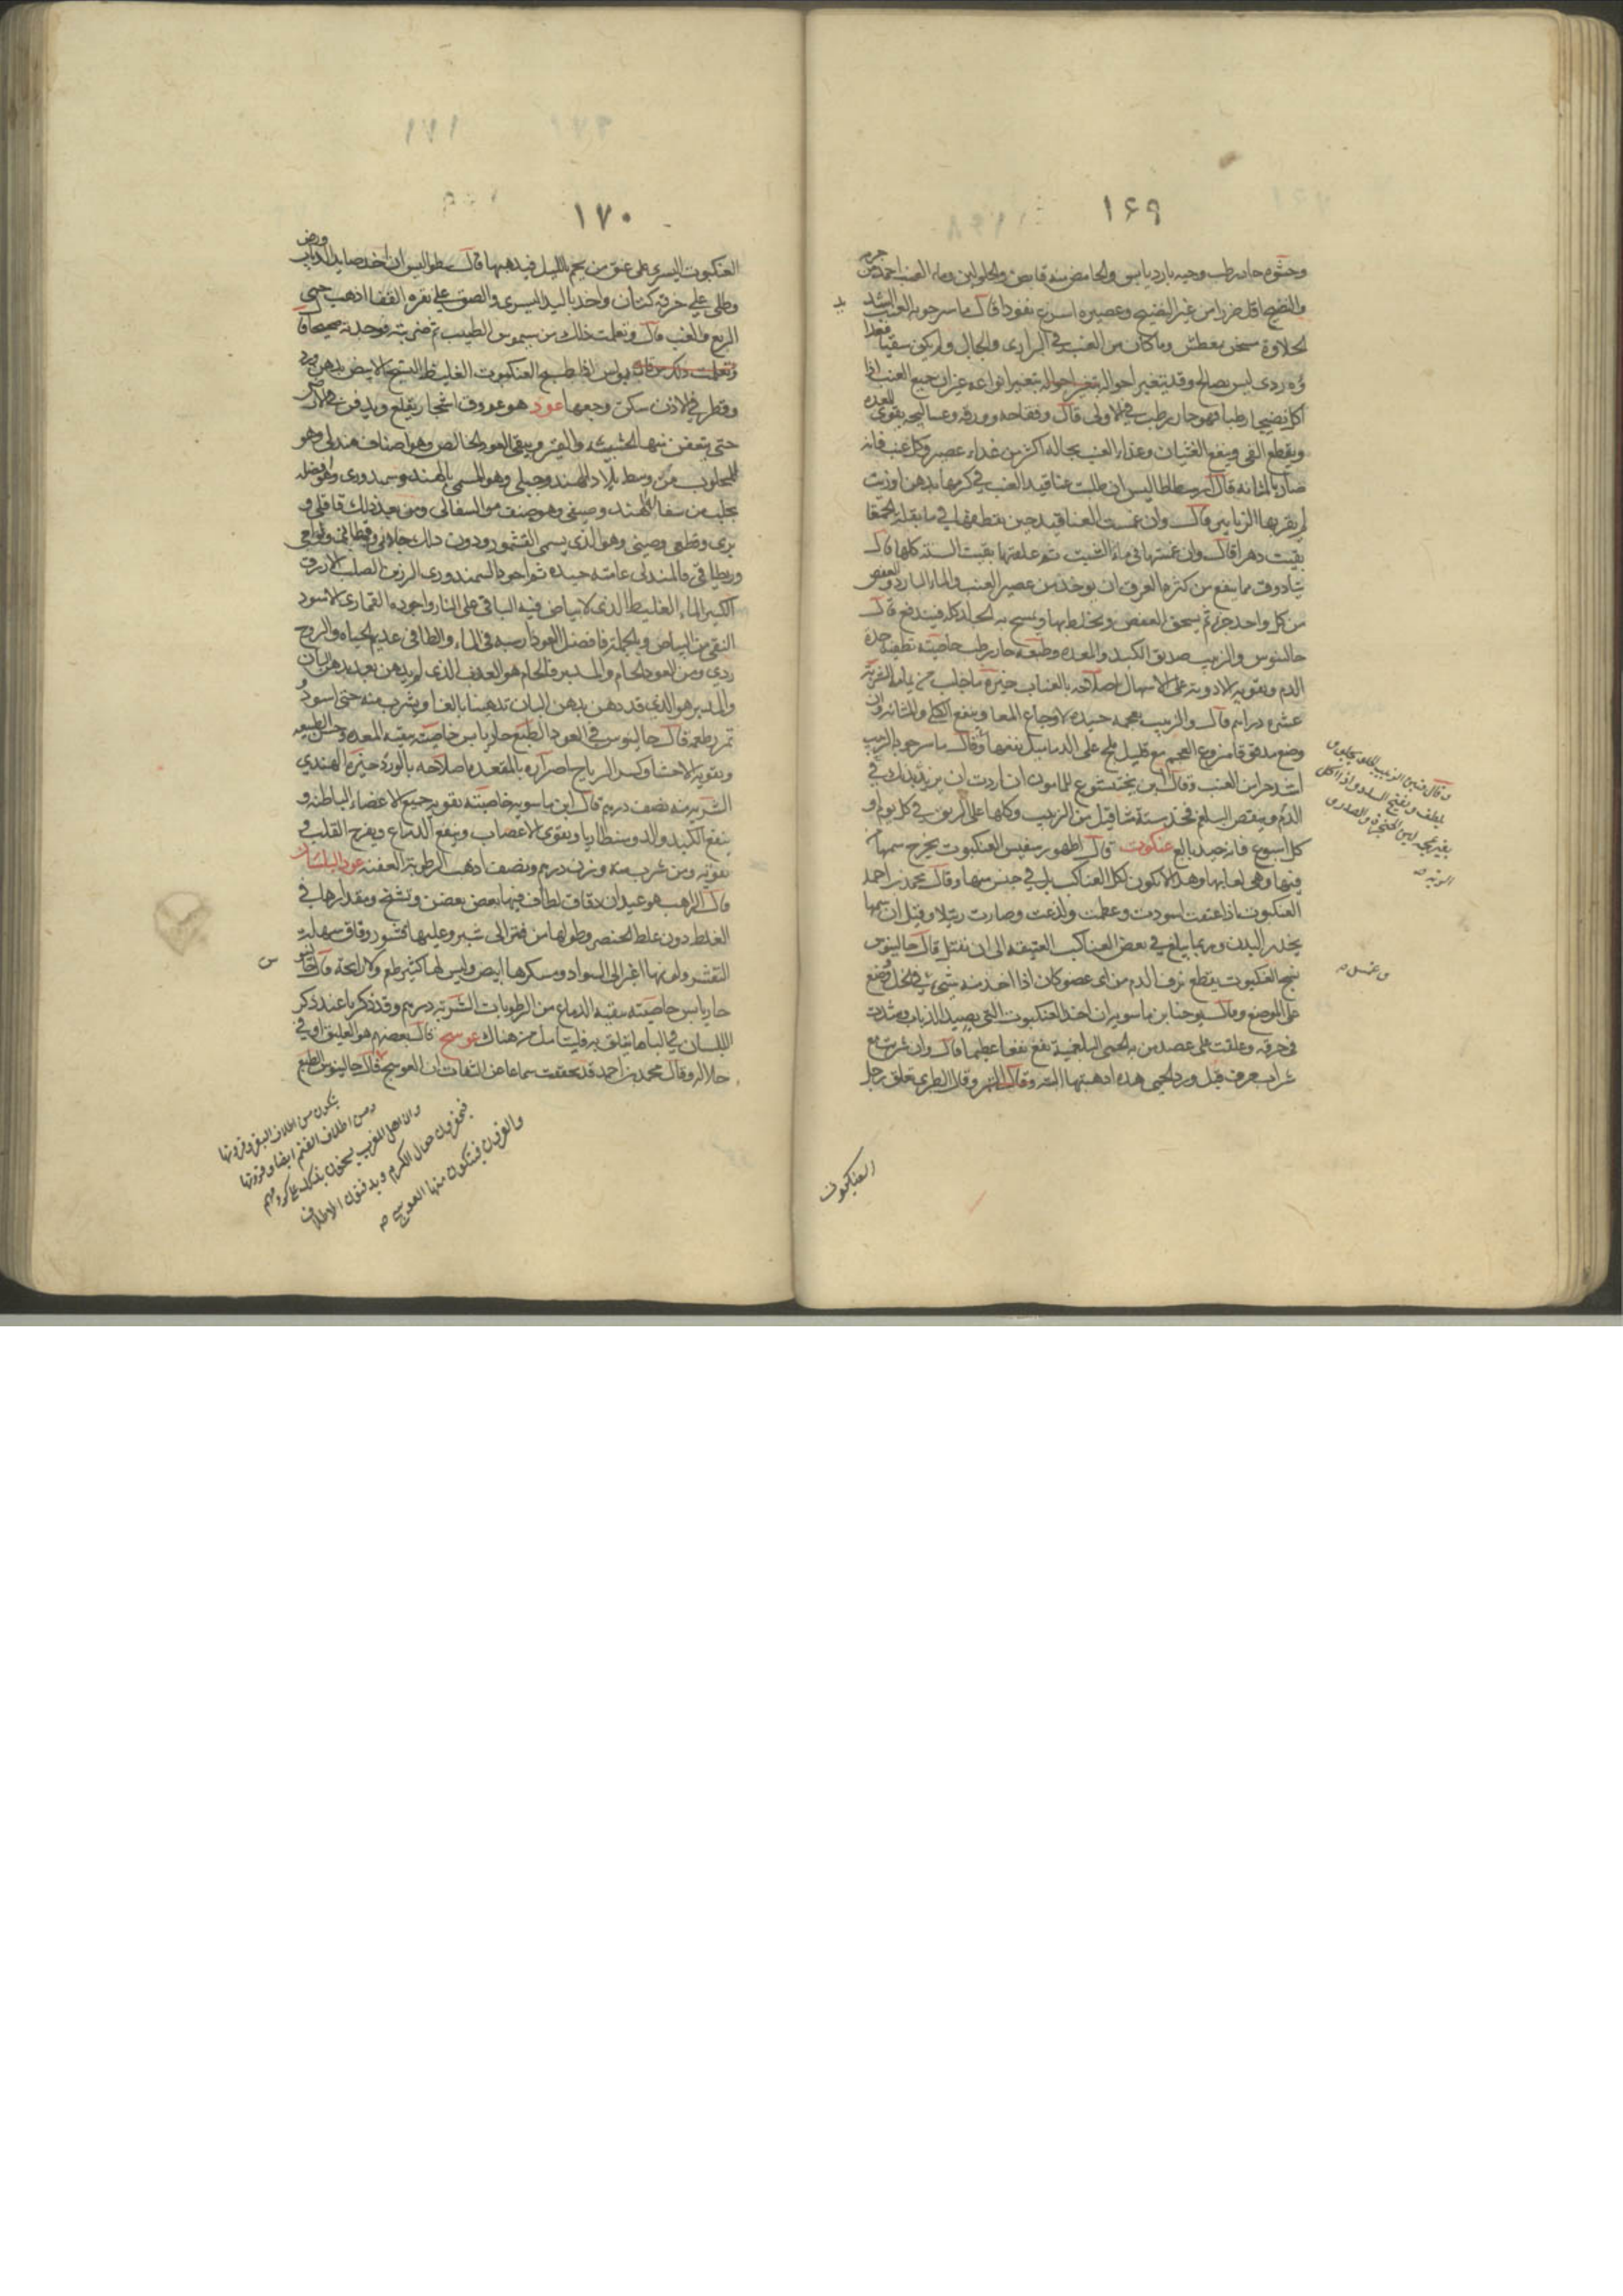 ١٦٩
وحشوه حار رطب وحبه بارد يابس والحامض منه قابض والحلو لين وماء العنب احمد من جرمه
والنضيج اقل ضررا من غير النضيج وعصيره اسرع نفوذا قال ماسرجويه العنب الشد
الحلاوة يسخن يعطش وما كان من العنب في البراري والجبال ولم يكن سقيا
فهو ردى ليس بصالح وقد يتغير احواله بتغير انواعه غير ان جميع العنب اذا
اكل نضيجا رطبا فهو حار رطب في الاولى قال وفقاحه وورقه وعساليجه يقوى المعده
ويقطع القى وينفع الغثيان وغذاء العنب بحاله اكثر من غذاء عصيره وكل عنب فانه
ضار بالمثانه قال ارسطاطاليس ان طليت عناقيد العنب في كرمها بدهن اوزيت
لم يقربها الزنابير قال وان غمست العناقيد حين يقطعها في ماء بقلة الحمقا
بقيت دهرا قال وان غمستها في ماء الشبت ثم علقتها بقيت السنه كلها قال
بنادوق مما ينفع من كثرة العرق ان يوخذ من عصير العنب والماء البارد والعفص
من كل واحد جزء ثم يسحق العفص ويخلط بها ويمسح به الجلد كله فينفع قال
جالينوس والزبيب صديق الكبد والمعده وطبعه حار رطب خاصيته تطفئه حدة
الدم وتقويه الادويه على الاسهال اصلاحه بالعناب خيره ما جلب من الشربه
عشره دراهم قال والزبيب بعجمه جيده لاوجاع المعا وينفع الكلى والمثانه وان
وضع مدقوقا منزوع العجم مع قليل ملح على الدماميل نفعها وقال ماسرجويه الزبيب
اشد حرا من العنب وقال ابن بختيشوع للمامون ان اردت ان يزيد بدنك في
الدم وينقص البلغم فخذ ستة مثاقيل من الزبيب وكلها على الريق في كل يوم او
كل اسبوع فانه جيد بالغ عنكبوت قال اظهور سفيس العنكبوت يخرج سمها من
فيها وهى لعابها وهذا لا يكون لكل العناكب بل في جنس منها وقال محمد بن احمد
العنكبوت اذا عتقت اسودت وعظمت ولذعت وصارت رتيلا وقيل ان سمها
يخدر البدن وربما يبلغ في بعض العناكب العتيقه الى ان يقتل قال جالينوس
نسج العنكبوت يقطع نزف الدم من اى عضو كان اذا اخذ منه شئ في الخل وضع
على الموضع وقال يوحنا بن ماسويه ان اخذ العنكبوت التي يصيد الذباب وشدت
في خرقه وعلقت على عضد من به الحمى البلغمية نفع نفعا عظيما قال وان شربت مع
شراب صرف قبل ورد الحمى هذه اذهبتها البته وقال الطبرى تعلق رجل
العنكبوت
١٧٠
العنكبوت اليسرى على عنق من يحم بالليل فيذهبها قال ان اخذ صايد الذباب
وطلى على خرقه كتان واخذ باليد اليسرى والصق على نقره القفا اذهب حمى
الربع والغب قال وتعلمت ذلك من الطبيب ثم ضربته فوجدته صحيحا قال
بولس اذا طبخ العنكبوت الغليظ النسيج الابيض بدهن ورد
وقطر في الاذن سكن وجعها عود هو عروق اشجار يقلع ويدفن في الارض
حتى يتعفن منها الخشبيه والقشر ويبقى العود الخالص وهو اصناف مندلى وهو
المجلوب من وسط بلاد الهند وجبلى وهو المسمى بالهند وسمندورى وهو افضله
يجلب من سفالة الهند وصيني وهو صنف من السفالى ومن بعد ذلك قاقلى و
برى وقطعى وصيني وهو الذى يسمى القشمور ودون ذلك
والمندلى عامته جيده ثم اجود السمندورى الرزين الصلب الازرق
الكثير الماء الغليظ الذى لا بياض فيه الباقى على النار واجوده القمارى الاسود
النقى من البياض وبالجملة فافضل العود ارسبه في الماء والطافي عديم الحياه والروح
ردي ومن العود الخام والمدبر فالخام هو العود الذى لم يدهن بعد بدهن البان
والمدبر هو الذي قد دهن بدهن البان تدهينا بالغا ويشرب منه حتى اسود
ثمر طعمه قال جالينوس في العود الطبع حار يابس خاصيته ينقيه المعده وحبس الطبيعه
وتقويه الاحشا وكسر الرياح اضراره بالمقعده اصلاحه بالورد خيره الهندى
الشربه منه نصف درهم قال ابن ماسويه خاصيته تقويه جميع الاعضاء الباطنه و
ينفع الكبد والدوسنطاريا ويقوى الاعصاب وينفع الدماغ ويفرح القلب
تقويه ومن شرب منه وزن درهم ونصف اذهب الرطوبة العفنه عود البلسان
قال الراهب هو عيدان دقاق لطاف فيها بعض بعض وتشنج ومقدارها في
الغلظ دون غلظ الخنصر وطولها من فتر الى شبر وعليها قشور رقاق سهلة
التقشر ولونها اغبر الى السواد ومكسرها ابيض وليس لها كثير طعم ولا رايحة قال جالينوس
حار يابس خاصيته ينقيه الدماغ من الرطوبات الشربه درهم وقد ذكر ما عند ذكر
البلسان في الباء ما يتعلق به فليتامل من هناك عوسج قال بعضهم هو العليق او في
حلاله وقال محمد بن احمد قد تحققت سماعا عن الثقات ان العوسج قال جالينوس الطبع
يتكون من اظلاف البقر وقرونها
ومن اظلاف الغنم ايضا وقرونها
وان اهل المغرب يسحون بذلك على كرومهم
فيحفرون حوال الكرم ويدفنون الاظلاف
والقرون فيتكون منها العوسج صح